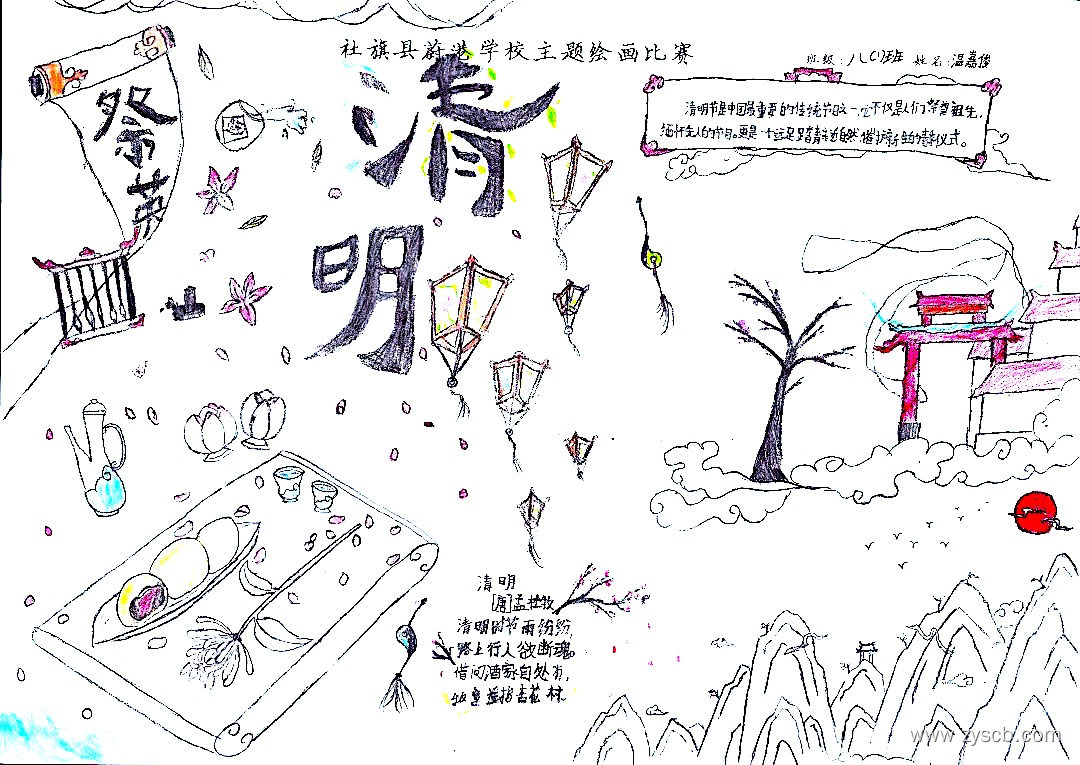 社旗县蔚港学校主题绘画比赛
班级:八(1)班 姓名:温嘉俊
祭
英
清
明
清明节是中国最重要的传统节日之一,它不仅是人们祭奠祖先,
缅怀先人的节日。更是一个远足踏青亲近自然、催护新生的春季仪式。
清明
[唐]孟杜牧
清明时节雨纷纷,
路上行人欲断魂。
借问酒家自处有,
牧童遥指杏花村。
www.zyscb.com